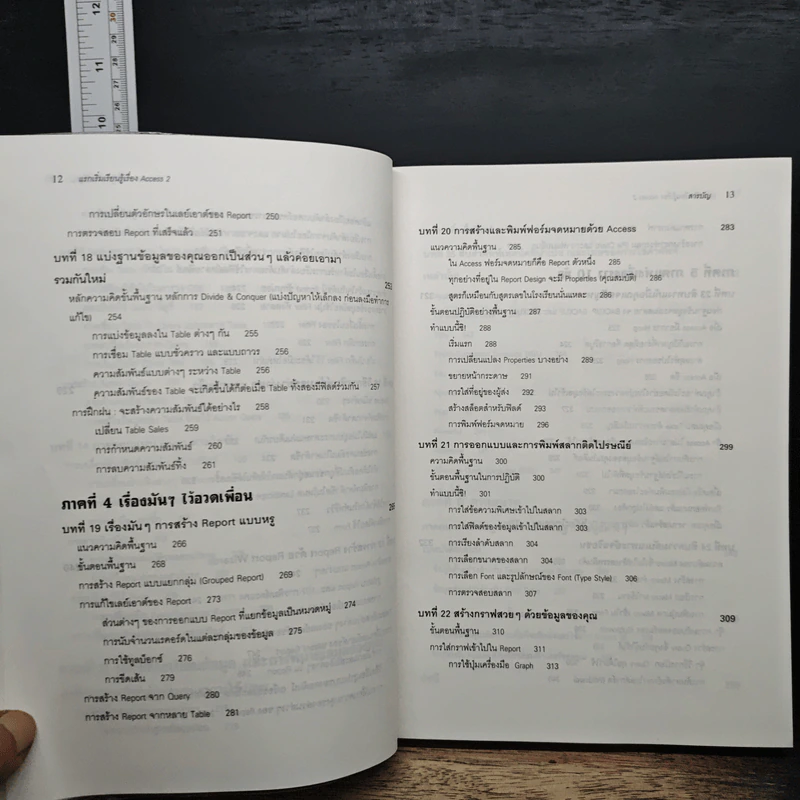 12 แรกเริ่มเรียนรู้เรื่อง Access 2
การเปลี่ยนตัวอักษรในเลย์เอาต์ของ Report 250
การตรวจสอบ Report ที่เสร็จแล้ว 251
บทที่ 18 แบ่งฐานข้อมูลของคุณออกเป็นส่วนๆ แล้วค่อยเอามา
รวมกันใหม่
หลักความคิดขั้นพื้นฐาน หลักการ Divide & Conquer (แบ่งปัญหาให้เล็กลง ก่อนลงมือทำการ
แก้ไข) 254
การแบ่งข้อมูลลงใน Table ต่างๆ กัน 255
การเชื่อม Table แบบชั่วคราว และแบบถาวร 256
ความสัมพันธ์แบบต่างๆ ระหว่าง Table 256
ความสัมพันธ์ของ Table จะเกิดขึ้นได้ก็ต่อเมื่อ Table ทั้งสองมีฟิลด์ร่วมกัน 257
การฝึกฝน : จะสร้างความสัมพันธ์ได้อย่างไร 258
เปลี่ยน Table Sales 259
การกำหนดความสัมพันธ์ 260
การลบความสัมพันธ์ทิ้ง 261
ภาคที่ 4 เรื่องมันๆ ไว้อวดเพื่อน
บทที่ 19 เรื่องมันๆ การสร้าง Report แบบหรู
แนวความคิดพื้นฐาน 266
ขั้นตอนพื้นฐาน 268
การสร้าง Report แบบแยกกลุ่ม (Grouped Report) 269
การแก้ไขเลย์เอาต์ของ Report 273
ส่วนต่างๆ ของการออกแบบ Report ที่แยกข้อมูลเป็นหมวดหมู่ 274
การนับจำนวนเรคอร์ดในแต่ละกลุ่มของข้อมูล 275
การใช้ทูลบ็อกซ์ 276
การขีดเส้น 279
การสร้าง Report จาก Query 280
การสร้าง Report จากหลาย Table 281
สารบัญ 13
บทที่ 20 การสร้างและพิมพ์ฟอร์มจดหมายด้วย Access 283
แนวความคิดพื้นฐาน 285
ใน Access ฟอร์มจดหมายก็คือ Report ตัวหนึ่ง 285
ทุกอย่างที่อยู่ใน Report Design จะมี Properties (คุณสมบัติ) 286
สูตรก็เหมือนกับสูตรเลขในโรงเรียนนั่นแหละ 286
ขั้นตอนปฏิบัติอย่างพื้นฐาน 287
ทำแบบนี้ซิ! 288
เริ่มแรก 288
การเปลี่ยนแปลง Properties บางอย่าง 289
ขยายหน้ากระดาษ 291
การใส่ที่อยู่ของผู้ส่ง 292
สร้างสล็อตสำหรับฟิลด์ 293
การพิมพ์ฟอร์มจดหมาย 296
บทที่ 21 การออกแบบและการพิมพ์สลากติดไปรษณีย์ 299
ความคิดพื้นฐาน 300
ขั้นตอนพื้นฐานในการปฏิบัติ 300
ทำแบบนี้ซิ! 301
การใส่ข้อความพิเศษเข้าไปในสลาก 303
การใส่ฟิลด์ของข้อมูลเข้าไปในสลาก 303
การเรียงลำดับสลาก 304
การเลือกขนาดของสลาก 304
การเลือก Font และรูปลักษณ์ของ Font (Type Style) 306
การตรวจสอบสลาก 307
บทที่ 22 สร้างกราฟสวยๆ ด้วยข้อมูลของคุณ 309
ขั้นตอนพื้นฐาน 310
การใส่กราฟเข้าไปใน Report 311
การใช้ปุ่มเครื่องมือ Graph 313